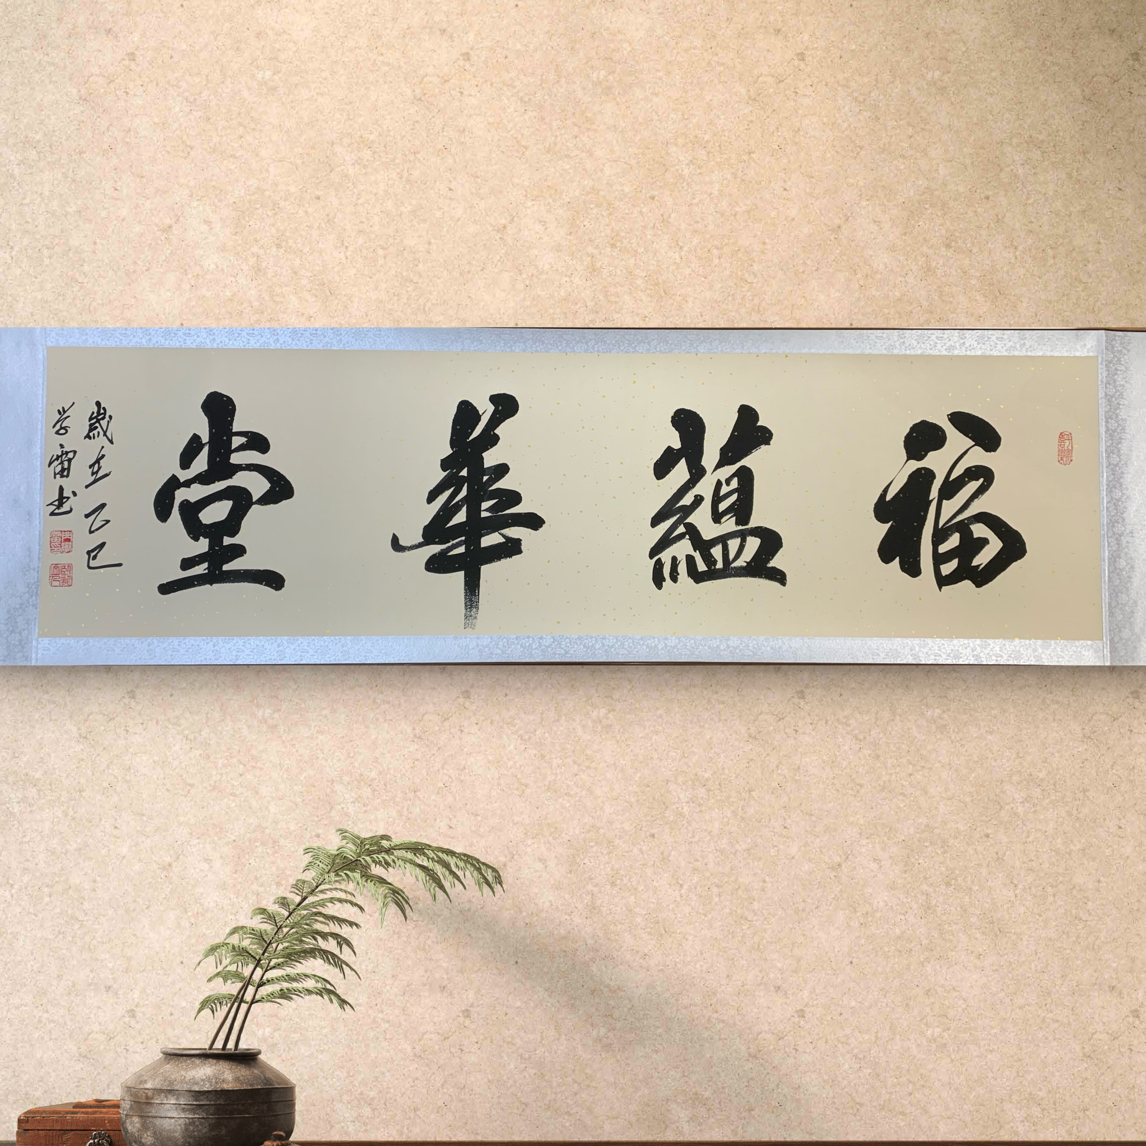 福蘊華堂
歲在乙巳
学雷书